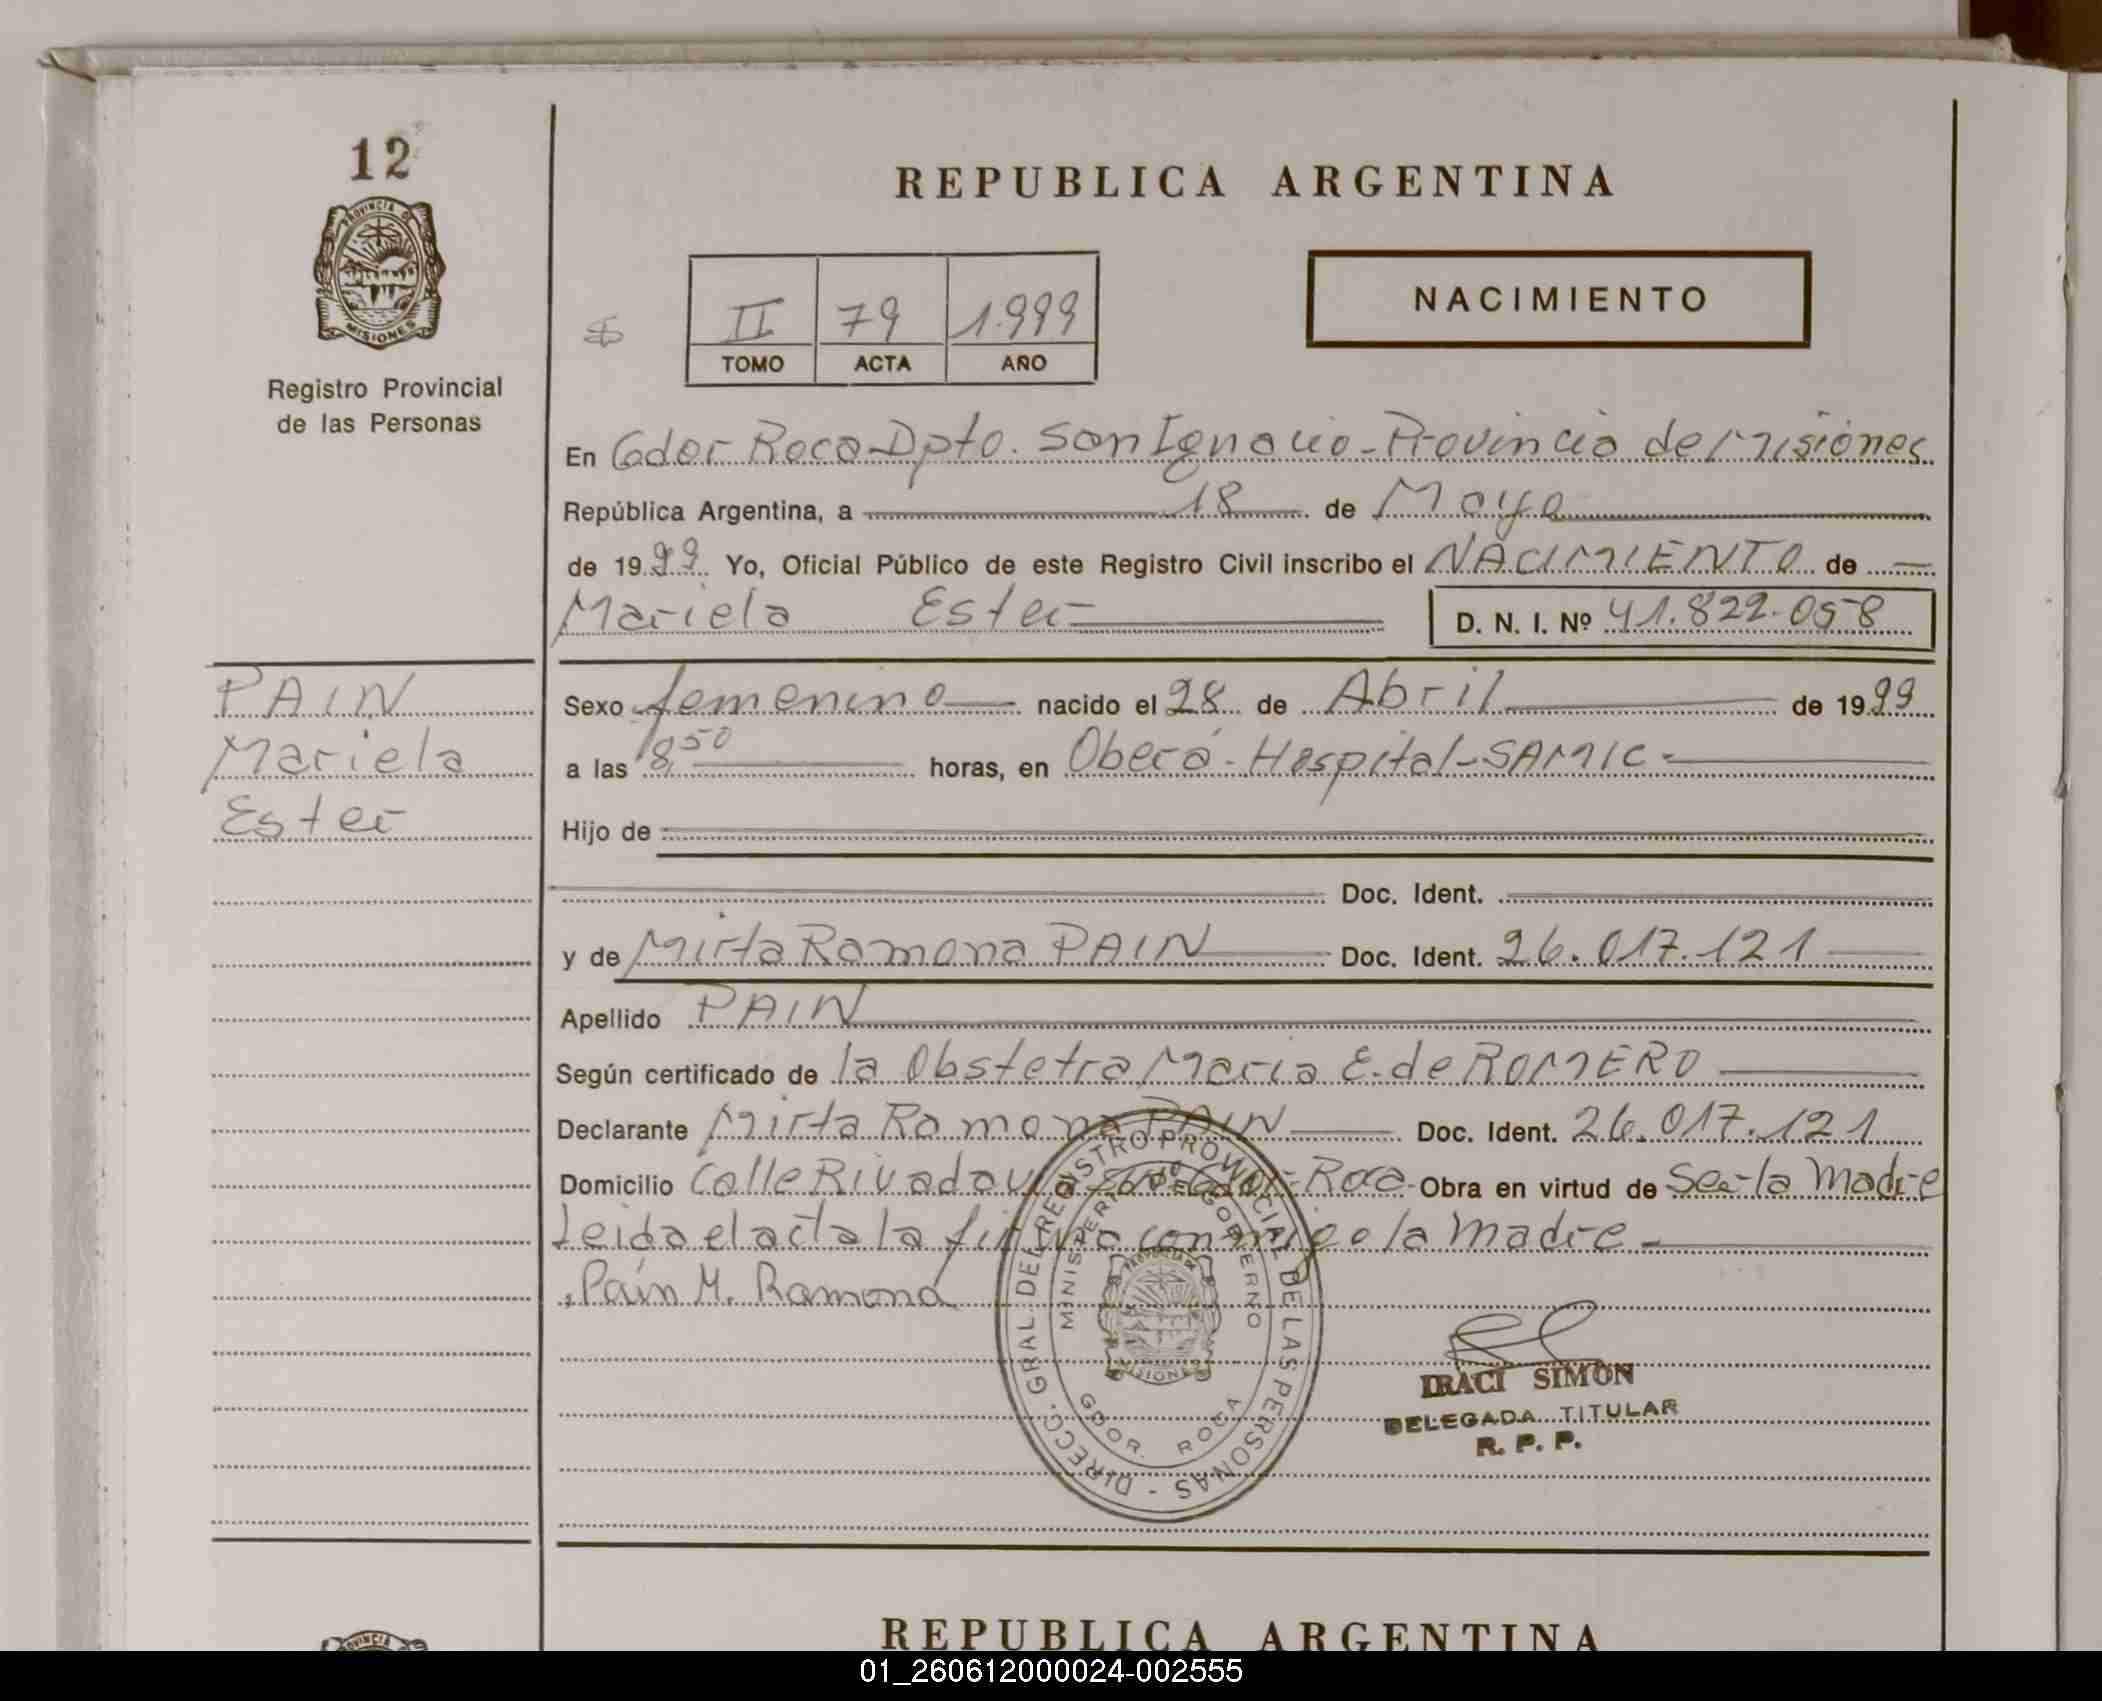 12
REPUBLICA ARGENTINA
PROVINCIA DE
MISIONES
Registro Provincial
de las Personas
II 79 1.999
TOMO ACTA AÑO
NACIMIENTO
En Gdor Roca Dpto. San Ignacio - Provincia de Misiones
República Argentina, a 18 de Mayo
de 1999 Yo, Oficial Público de este Registro Civil inscribo el NACIMIENTO de
Mariela Ester D. N. I. Nº 41.822.058
PAIN
Mariela
Ester
Sexo femenino nacido el 28 de Abril de 1999
a las 8,50 horas, en Oberá - Hospital - SAMIC -
Hijo de
Doc. Ident.
y de Mirta Ramona PAIN Doc. Ident. 26.017.121
Apellido PAIN
Según certificado de la Obstetra Maria E. de ROMERO
Declarante Mirta Ramona PAIN Doc. Ident. 26.017.121
Domicilio Calle Rivadavia Gdor. Roca - Obra en virtud de Ser la Madre
Leida el acta la firma conmigo la Madre -
Pain M. Ramona
DIRECC. GRAL. DEL REGISTRO PROVINCIAL DE LAS PERSONAS -
MINISTERIO DE GOBIERNO
GDOR. ROCA
IRACI SIMON
DELEGADA TITULAR
R. P. P.
REPUBLICA ARGENTINA
01_260612000024-002555